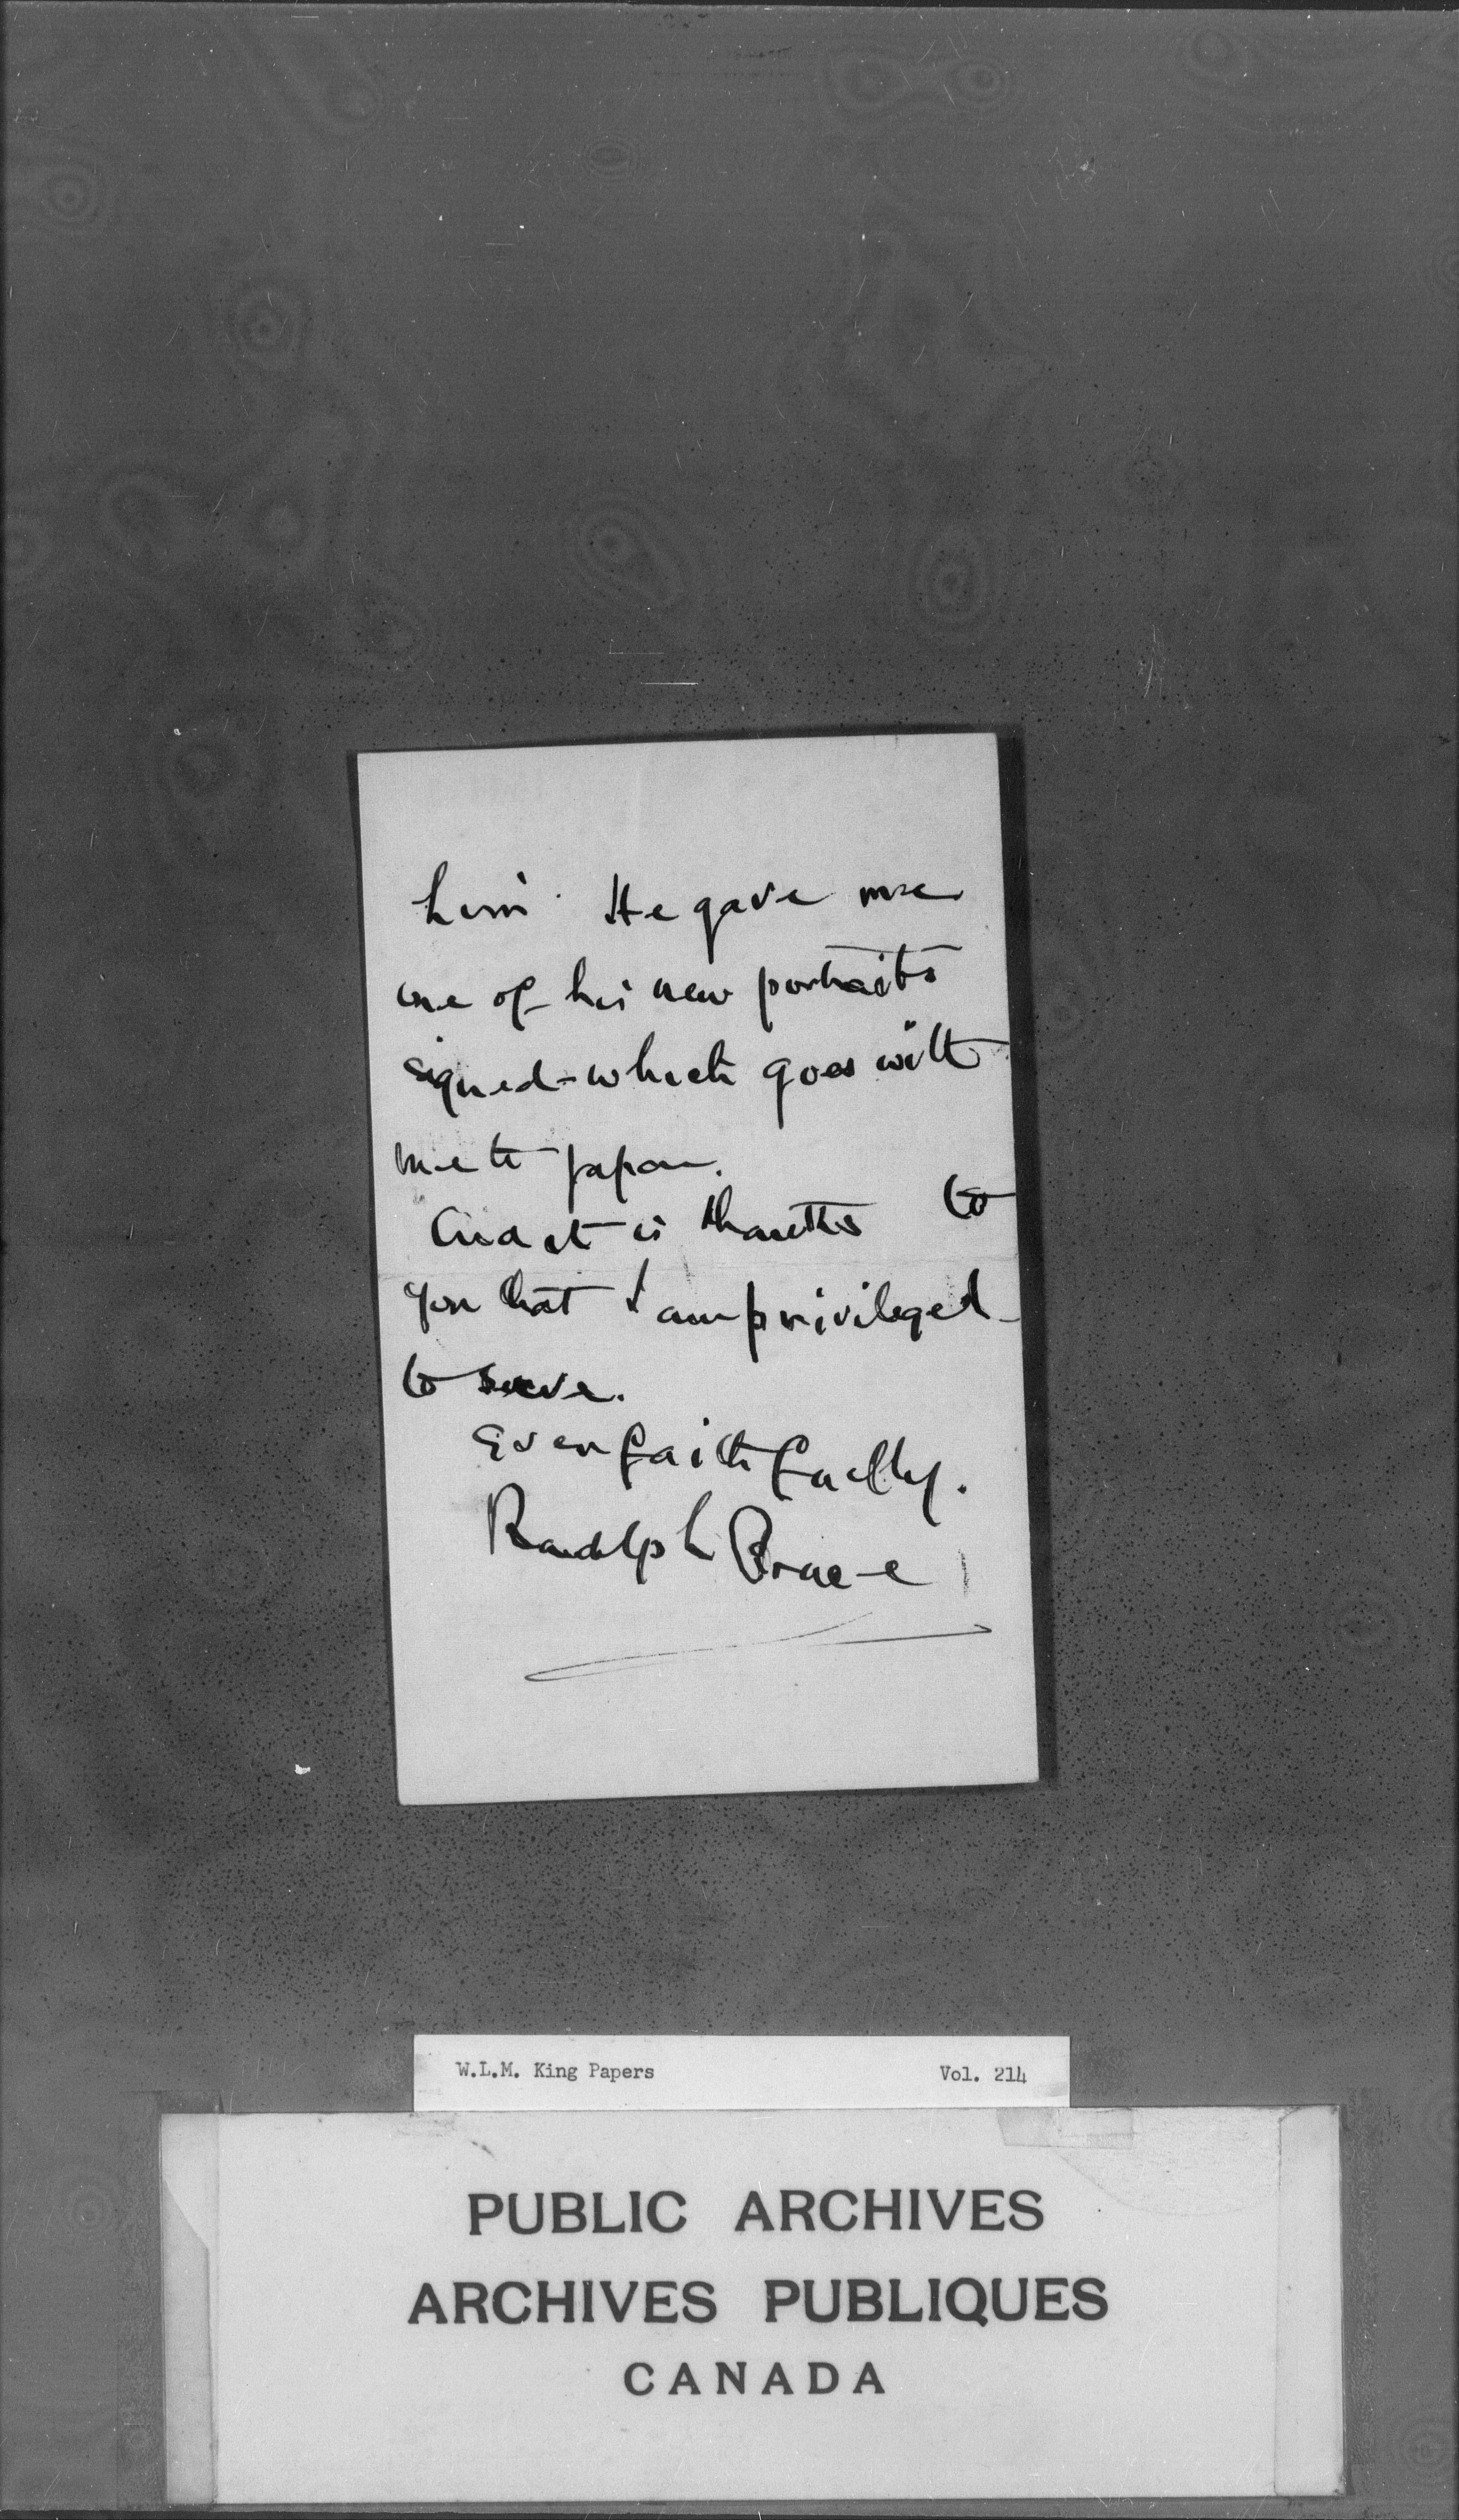 him. He gave me
one of his new portraits
signed - which goes with
me to Japan.
And it is thanks to
you that I am privileged
to serve.
Ever faithfully.
Randolph Bruce
W.L.M. King Papers Vol. 214
PUBLIC ARCHIVES
ARCHIVES PUBLIQUES
CANADA